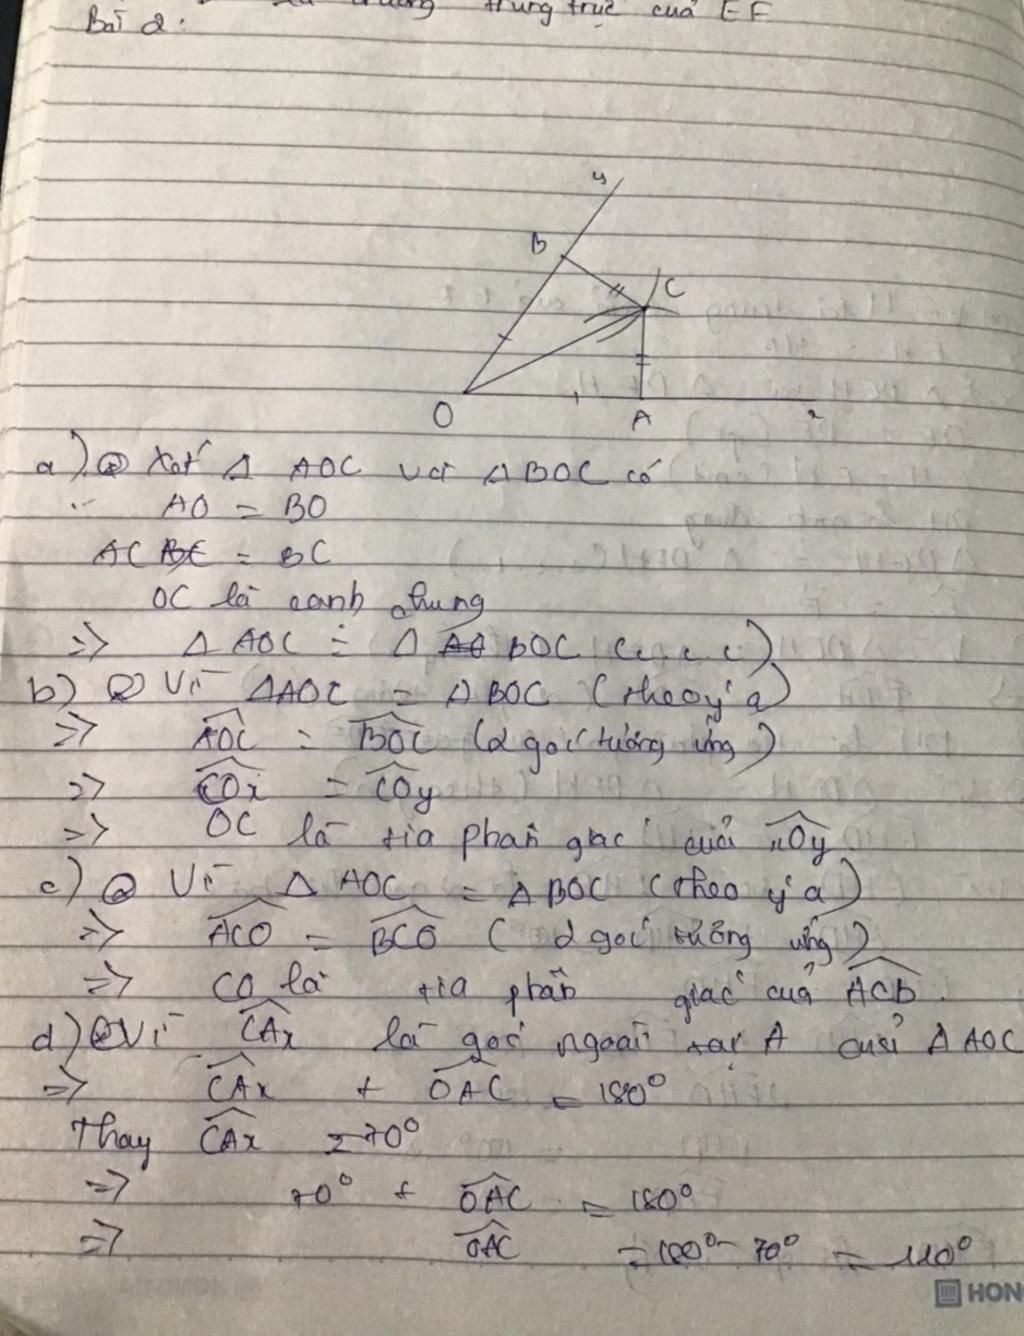 trung trực của EF
Bài 2:
y
B
C
O
A
x
a) Xét Δ AOC và ΔBOC có
AO = BO
AC = BC
OC là cạnh chung
=> Δ AOC = Δ BOC (c.c.c)
b) Vì ΔAOC = ΔBOC (theo ý a)
=> AOC = BOC (2 góc tướng ứng)
=> COx = COy
=> OC là tia phân giác của xOy
c) Vì Δ AOC = ΔBOC (theo ý a)
=> ACO = BCO (2 góc tướng ứng)
=> CO là tia phân giác của ACB.
d) Vì CAx là góc ngoài tại A của Δ AOC
=> CAx + OAC = 180°
Thay CAx = 70°
=> 70° + OAC = 180°
=> OAC = 180° - 70° = 110°
HON